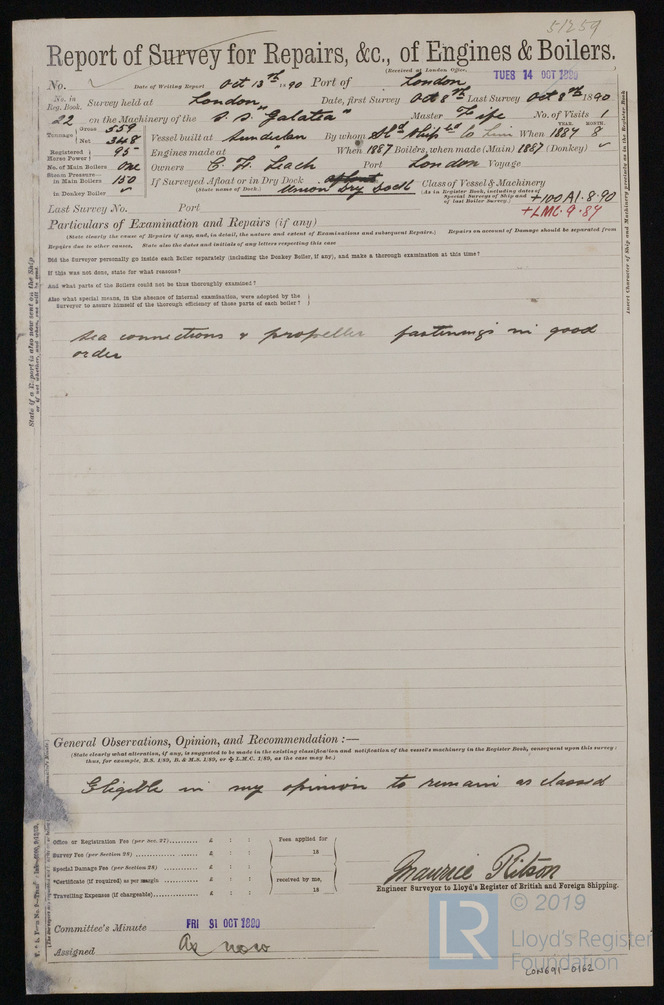 51259
Report of Survey for Repairs, &c., of Engines & Boilers.
(Received at London Office, TUES 14 OCT 1890
No. Date of Writing Report Oct 13th 1890 Port of London
No. in Reg. Book. Survey held at London Date, first Survey Oct 8th Last Survey Oct 8th 1890
22 on the Machinery of the S.S. "Galatea" Master Fife No. of Visits 1
Tonnage Gross 559 Net 348 Vessel built at Sunderlan By whom Sld Ship Co Lim When YEAR. 1887 MONTH. 8
Registered Horse Power 95 Engines made at When 1887 Boilers, when made (Main) 1887 (Donkey)
No. of Main Boilers One Owners C. F. Leach Port London Voyage
Steam Pressure in Main Boilers 150 If Surveyed Afloat or in Dry Dock afloat Class of Vessel & Machinery
in Donkey Boiler (State name of Dock.) Union Dry Dock (As in Register Book, including dates of Special Surveys of Ship and of last Boiler Survey.) +100A1.8.90
+LMC.9.87
Last Survey No. Port
Particulars of Examination and Repairs (if any)
(State clearly the cause of Repairs if any, and, in detail, the nature and extent of Examinations and subsequent Repairs.) Repairs on account of Damage should be separated from
Repairs due to other causes, State also the dates and initials of any letters respecting this case
Did the Surveyor personally go inside each Boiler separately (including the Donkey Boiler, if any), and make a thorough examination at this time?
If this was not done, state for what reasons?
And what parts of the Boilers could not be thus thoroughly examined?
Also what special means, in the absence of internal examination, were adopted by the
Surveyor to assure himself of the thorough efficiency of those parts of each boiler?
Sea connections & propeller fastenings in good
order
General Observations, Opinion, and Recommendation :—
(State clearly what alteration, if any, is suggested to be made in the existing classification and notification of the vessel's machinery in the Register Book, consequent upon this survey;
thus, for example, B.S. 1/89, B. & M.S. 1/89, or ✠ L.M.C. 1/89, as the case may be.)
Eligible in my opinion to remain as classed
Office or Registration Fee (per Sec. 27) £ : : Fees applied for
Survey Fee (per Section 28) £ : : 18
Special Damage Fee (per Section 28) £ : :
*Certificate (if required) as per margin £ : : received by me,
Travelling Expenses (if chargeable) £ : : 18
Maurice Ritson
Engineer Surveyor to Lloyd's Register of British and Foreign Shipping.
Committee's Minute FRI 31 OCT 1890
Assigned As now
© 2019
LR
Lloyd's Register
Foundation
LON691-0162
Insert Character of Ship and Machinery precisely as in the Register Book
State if a Report is also now sent on the Ship